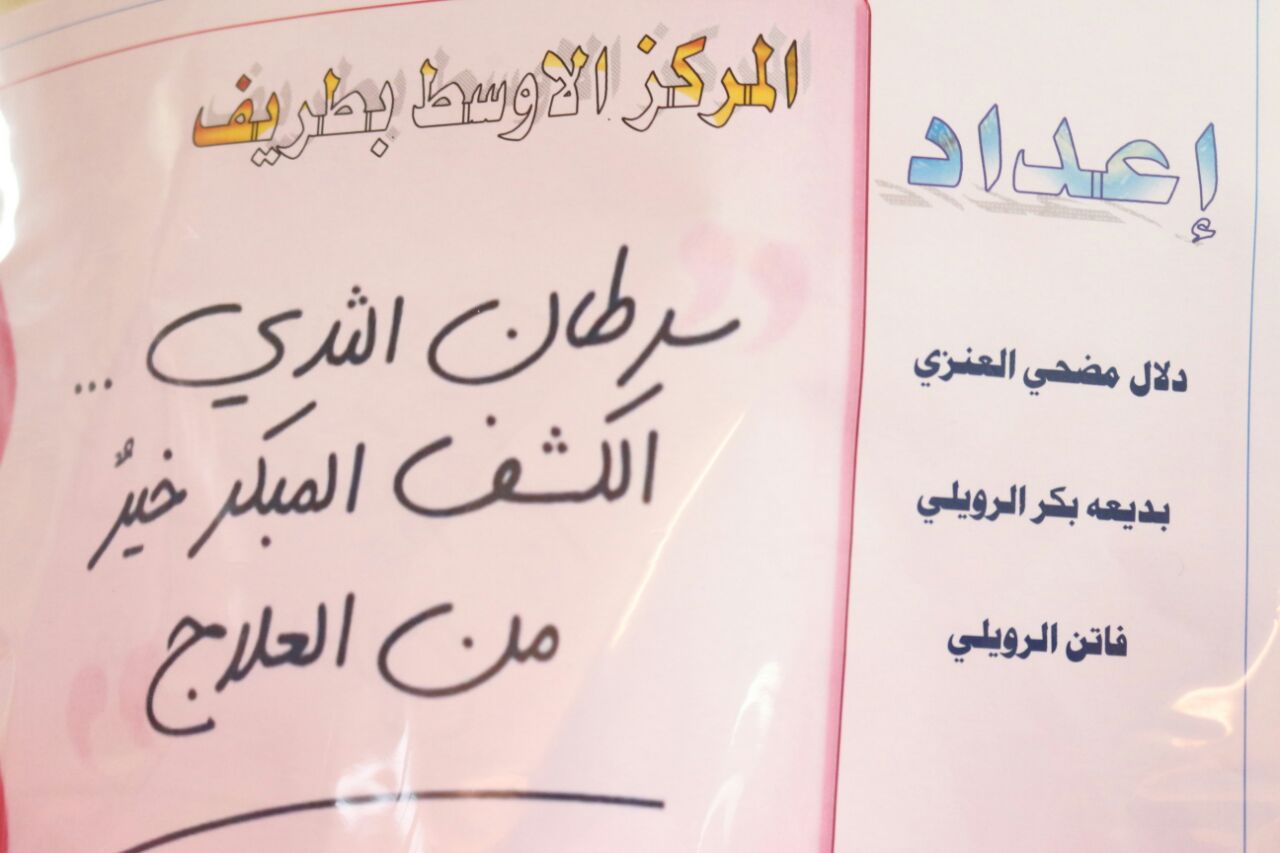 المركز الاوسط بطريف
سرطان الثدي ...
الكشف المبكر خيرٌ
من العلاج
إعداد
دلال مضحي العنزي
بديعه بكر الرويلي
فاتن الرويلي